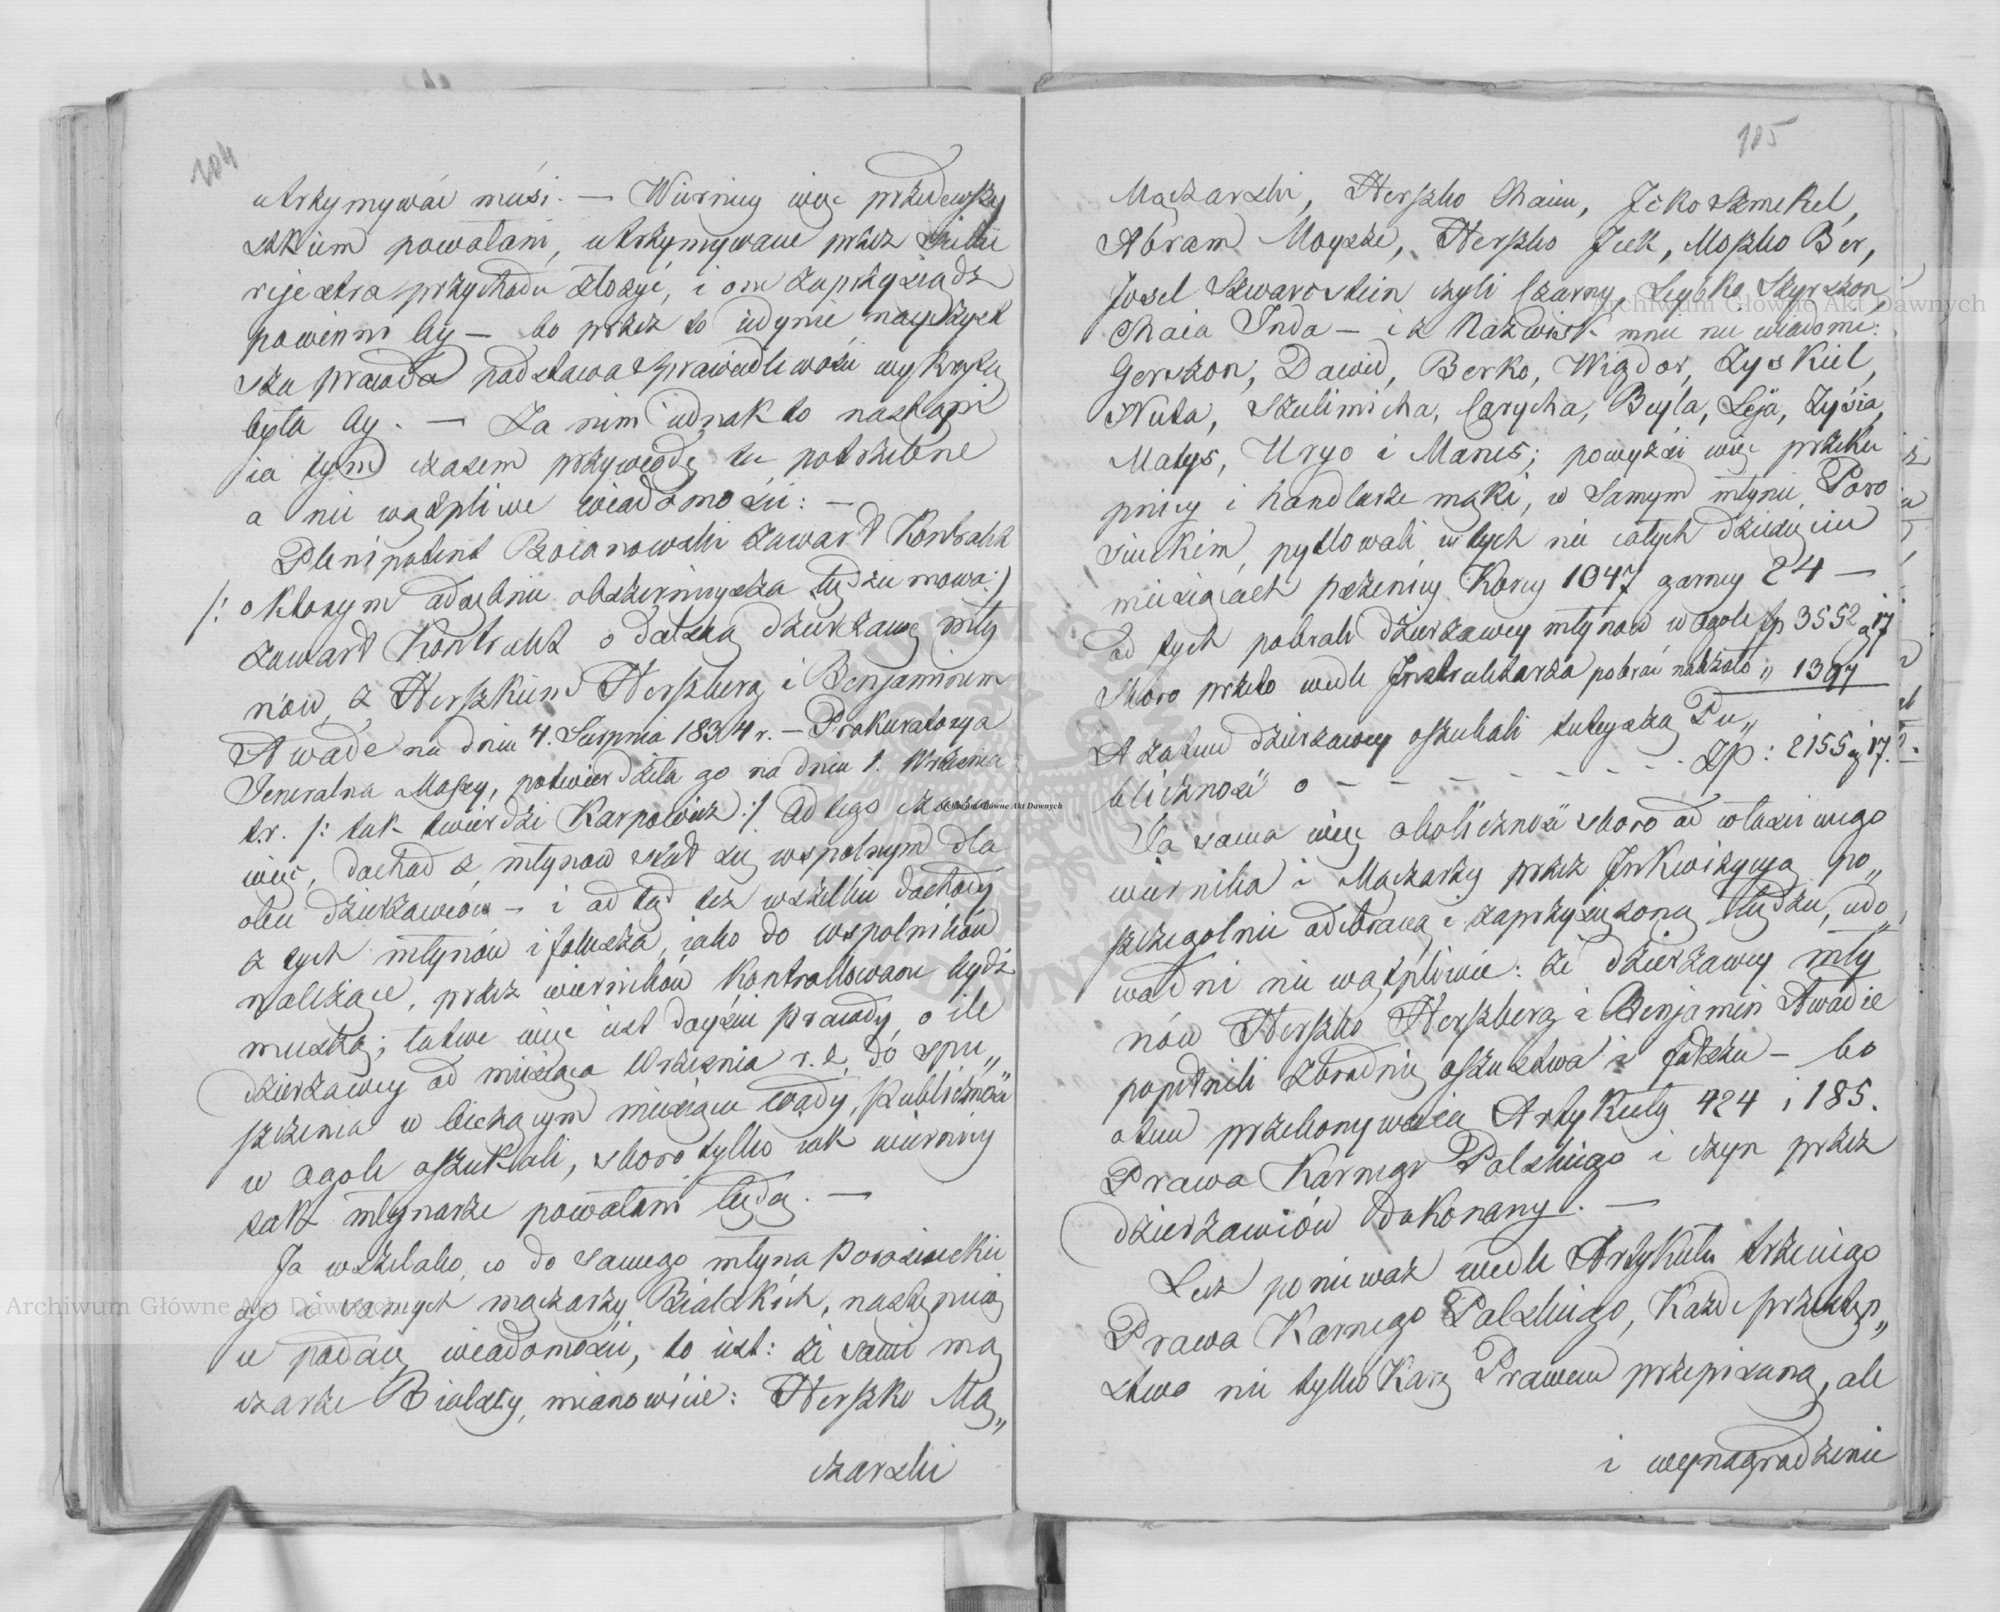 104
utrzymywać musi. — Wiernicy więc przedewszy
stkiem powołani, utrzymywane przez siebie
rejestra przychodu złożyć, i oni zaprzysiądz
powinni by — bo przez to jedynie nayczyst
sza prawda podstawa sprawiedliwości wykryta
była by. — Za nim jednak to nastąpi
ja tym czasem przywiodę tu potrzebne
a nie wątpliwe wiadomości: —
Plenipotent Boianowski zawarł Kontrakt
/: o którym oddzielnie obszerniejsza będzie mowa :/
zawarł Kontrakt o dalszą dzierżawę mły
nów, z Herszkiem Herszberg i Benjaminem
Awade na dniu 4. Sierpnia 1834 r. — Prokuratorya
Jeneralna Massy, potwierdziła go na dniu 1. Września
t.r. /: tak twierdzi Karpowicz :/ Od tego czasu
więc, dochod z młynow stał się wspolnym dla
obu dzierżawców — i od tąd też wszelkie dochody
z tych młynów i folusza, jako do wspolników
należące, przez wierników kontrollowane bydź
muszą; łatwe więc jest dojście prawdy, o ile
dzierżawcy od miesiąca Września r. z. do spu„
szczenia w bieżącym miesiącu wody, publiczność
w ogole oszukali, skoro tylko jak wiernicy
tak młynarze powołani będą. —
Ja wszelako, co do samego młyna Porosiuckie
go i samych mączarzy Bialskich, następując
e podaię wiadomości, to jest: że sami mą
czarze Bialscy, mianowicie: Herszko Mą„
czarski
105
Mączarski, Herszko Chaim, Icko Szmekel,
Abram Moysze, Herszko Jcek, Moszko Ber,
Josel Szwarcstein czyli Czarny, Leybko Szyrszon,
Chaia Inda — ich nazwisk mnie nie wiadome:
Gerszon, Dawid, Berko, Wigdor, Zyskiel,
Nuta, Szulimicha, Carycha, Beyla, Leja, Zysia,
Matys, Uryo i Manes; powyżsi więc przeku
pnicy i handlarze mąki, w samym młynie Poro
siuckim, pytlowali w tych nie całych dziesięciu
miesiącach pszenicy Korcy 1047 garncy 24 —
od tych pobrali dzierżawcy młynow w ogole fp 3552 g 17
skoro przeto wedle Instruktarza pobrać należało „ 1397
A zatem dzierżawcy oszukali tutejszą Pu„
bliczność o — — — — — — Zp: 2155 g 17.
Ta sama więc okoliczność skoro od właściwego
wiernika i Mączarzy przez Inkwizycyą po„
szczegolnie odebraną i zaprzysiężoną będzie, udo„
wadni nie wątpliwie: że dzierżawcy mły
nów Herszko Herszberg i Benjamin Awadie
popełnili zbrodnię oszustwa i fałszu — bo
otem przekonywaią Artykuły 424 i 185.
Prawa Karnego Polskiego i czyn przez
dzierżawców dokonany. —
Lecz ponieważ wedle Artykułu trzeciego
Prawa Karnego Polskiego, Każde przestęp„
stwo nie tylko Karę Prawem przepisaną, ale
i wynagrodzenie
Archiwum Główne Akt Dawnych
Archiwum Główne Akt Dawnych
Archiwum Główne Akt Dawnych